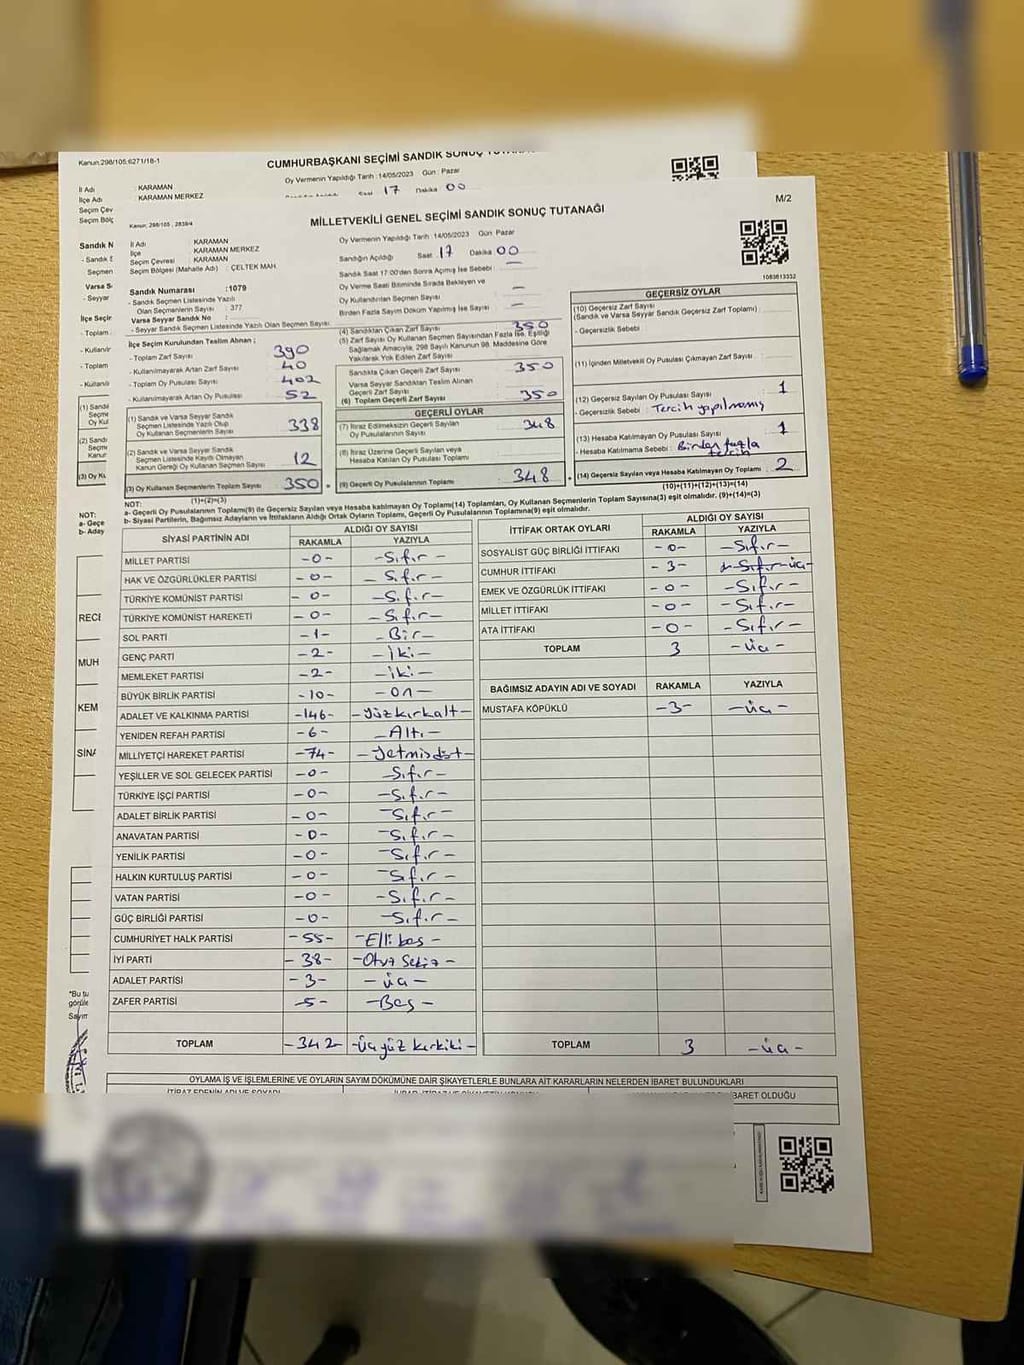 Kanun:298/105,6271/18-1
CUMHURBAŞKANI SEÇİMİ SANDIK SONUÇ
Oy Vermenin Yapıldığı Tarih :14/05/2023 Gün : Pazar
Saat 17 Dakika 00
İl Adı : KARAMAN
İlçe Adı : KARAMAN MERKEZ
Seçim Çev
Seçim Bölg
Sandık N
Seçmen
Varsa S
- Seyyar
İlçe Seçir
- Toplam
(1) Sandı
(2) Sandı
(3) Oy Ku
NOT:
a- Geçe
b- Aday
RECE
MUH
KEM
SİNA
M/2
Kanun, 298/105 , 2839/4
MİLLETVEKİLİ GENEL SEÇİMİ SANDIK SONUÇ TUTANAĞI
İl Adı : KARAMAN
İlçe : KARAMAN MERKEZ
Seçim Çevresi : KARAMAN
Seçim Bölgesi (Mahalle Adı) : ÇELTEK MAH.
Oy Vermenin Yapıldığı Tarih :14/05/2023 Gün Pazar
Sandığın Açıldığı Saat 17 Dakika 00
Sandık Saat 17:00'den Sonra Açılmış İse Sebebi
Oy Verme Saati Bitiminde Sırada Bekleyen ve
Oy Kullandırılan Seçmen Sayısı –
Birden Fazla Sayım Döküm Yapılmış İse Sayısı –
1083813332
Sandık Numarası :1079
- Sandık Seçmen Listesinde Yazılı
Olan Seçmenlerin Sayısı : 377
Varsa Seyyar Sandık No :
- Seyyar Sandık Seçmen Listesinde Yazılı Olan Seçmen Sayısı:
İlçe Seçim Kurulundan Teslim Alınan ;
- Toplam Zarf Sayısı 390
- Kullanılmayarak Artan Zarf Sayısı 40
- Toplam Oy Pusulası Sayısı 402
- Kullanılmayarak Artan Oy Pusulası 52
(1) Sandık ve Varsa Seyyar Sandık
Seçmen Listesinde Yazılı Olup
Oy Kullanan Seçmenlerin Sayısı 338
(2) Sandık ve Varsa Seyyar Sandık
Seçmen Listesinde Kayıtlı Olmayan
Kanun Gereği Oy Kullanan Seçmen Sayısı 12
(3) Oy Kullanan Seçmenlerin Toplam Sayısı 350
(1)+(2)=(3)
(4) Sandıktan Çıkan Zarf Sayısı 350
(5) Zarf Sayısı Oy Kullanan Seçmen Sayısından Fazla İse, Eşitliği
Sağlamak Amacıyla, 298 Sayılı Kanunun 98. Maddesine Göre
Yakılarak Yok Edilen Zarf Sayısı
Sandıkta Çıkan Geçerli Zarf Sayısı 350
Varsa Seyyar Sandıktan Teslim Alınan
Geçerli Zarf Sayısı
(6) Toplam Geçerli Zarf Sayısı 350
GEÇERLİ OYLAR
(7) İtiraz Edilmeksizin Geçerli Sayılan
Oy Pusulalarının Sayısı 348
(8) İtiraz Üzerine Geçerli Sayılan veya
Hesaba Katılan Oy Pusulası Toplamı
(9) Geçerli Oy Pusulalarının Toplamı 348
GEÇERSİZ OYLAR
(10) Geçersiz Zarf Sayısı
(Sandık ve Varsa Seyyar Sandık Geçersiz Zarf Toplamı)
- Geçersizlik Sebebi
(11) İçinden Milletvekili Oy Pusulası Çıkmayan Zarf Sayısı
(12) Geçersiz Sayılan Oy Pusulası Sayısı 1
- Geçersizlik Sebebi : Tercih yapılmamış
(13) Hesaba Katılmayan Oy Pusulası Sayısı 1
- Hesaba Katılmama Sebebi : Birden fazla
tercih
(14) Geçersiz Sayılan veya Hesaba Katılmayan Oy Toplamı 2
(10)+(11)+(12)+(13)=(14)
NOT:
a- Geçerli Oy Pusulalarının Toplamı(9) ile Geçersiz Sayılan veya Hesaba katılmayan Oy Toplamı(14) Toplamları, Oy Kullanan Seçmenlerin Toplam Sayısına(3) eşit olmalıdır. (9)+(14)=(3)
b- Siyasi Partilerin, Bağımsız Adayların ve İttifakların Aldığı Ortak Oyların Toplamı, Geçerli Oy Pusulalarının Toplamına(9) eşit olmalıdır.
SİYASİ PARTİNİN ADI ALDIĞI OY SAYISI
RAKAMLA YAZIYLA
MİLLET PARTİSİ -0- -Sıfır-
HAK VE ÖZGÜRLÜKLER PARTİSİ -0- -Sıfır-
TÜRKİYE KOMÜNİST PARTİSİ -0- -Sıfır-
TÜRKİYE KOMÜNİST HAREKETİ -0- -Sıfır-
SOL PARTİ -1- -Bir-
GENÇ PARTİ -2- -İki-
MEMLEKET PARTİSİ -2- -iki-
BÜYÜK BİRLİK PARTİSİ -10- -on-
ADALET VE KALKINMA PARTİSİ -146- -Yüzkırkaltı-
YENİDEN REFAH PARTİSİ -6- -Altı-
MİLLİYETÇİ HAREKET PARTİSİ -74- -Yetmişdört-
YEŞİLLER VE SOL GELECEK PARTİSİ -0- -Sıfır-
TÜRKİYE İŞÇİ PARTİSİ -0- -Sıfır-
ADALET BİRLİK PARTİSİ -0- -Sıfır-
ANAVATAN PARTİSİ -0- -Sıfır-
YENİLİK PARTİSİ -0- -Sıfır-
HALKIN KURTULUŞ PARTİSİ -0- -Sıfır-
VATAN PARTİSİ -0- -Sıfır-
GÜÇ BİRLİĞİ PARTİSİ -0- -Sıfır-
CUMHURİYET HALK PARTİSİ -55- -Elli beş-
İYİ PARTİ -38- -Otuz Sekiz-
ADALET PARTİSİ -3- -üç-
ZAFER PARTİSİ -5- -Beş-
TOPLAM -342- -Üçyüz kırkiki-
İTTİFAK ORTAK OYLARI ALDIĞI OY SAYISI
RAKAMLA YAZIYLA
SOSYALİST GÜÇ BİRLİĞİ İTTİFAKI -0- -Sıfır-
CUMHUR İTTİFAKI -3- -Sıfır-üç-
EMEK VE ÖZGÜRLÜK İTTİFAKI -0- -Sıfır-
MİLLET İTTİFAKI -0- -Sıfır-
ATA İTTİFAKI -0- -Sıfır-
TOPLAM 3 -üç-
BAĞIMSIZ ADAYIN ADI VE SOYADI RAKAMLA YAZIYLA
MUSTAFA KÖPÜKLÜ -3- -üç-
TOPLAM 3 -üç-
OYLAMA İŞ VE İŞLEMLERİNE VE OYLARIN SAYIM DÖKÜMÜNE DAİR ŞİKAYETLERLE BUNLARA AİT KARARLARIN NELERDEN İBARET BULUNDUKLARI
İTİRAZ EDENİN ADI VE SOYADI
BARET OLDUĞU